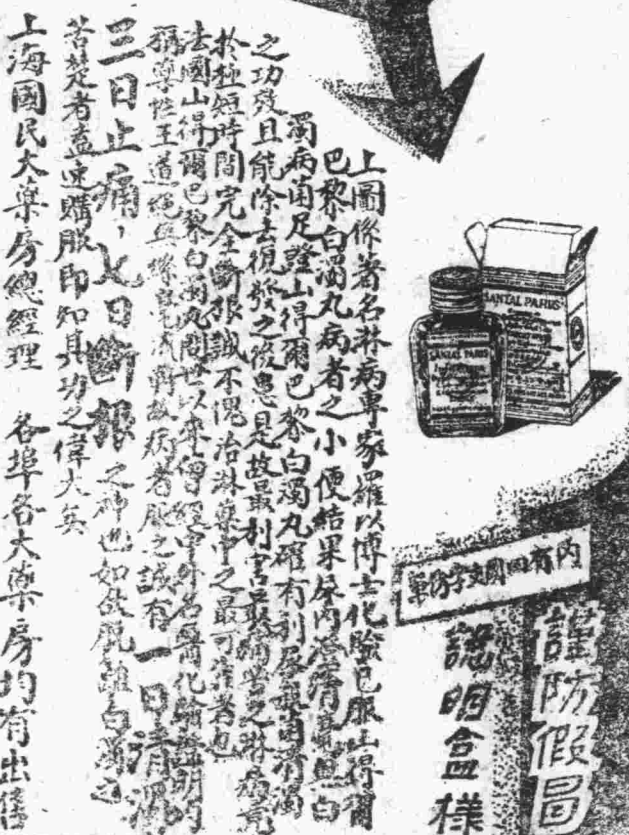 SANTAL PARIS
SANTAL PARIS
謹防假冒
說明盒樣
內有四國文字仿單
上圖係著名淋病專家羅以博士化驗已服山得爾
巴黎白濁丸病者之小便結果尿內澄清毫無白
濁病菌足證山得爾巴黎白濁丸確有利尿殺菌清濁
之功效且能除去復發之後患是故最利害最痛苦之淋病竟
於極短時間完全斷根誠不愧治淋藥中之最可靠者也
法國山得爾巴黎白濁丸問世以來曾經中外名醫化驗證明均
稱藥性王道絕無絲毫流弊故病者服之誠有一日清濁
三日止痛，七日斷根之神也如欲脫離白濁之
苦楚者盍速購服即知其功之偉大矣
上海國民大藥房總經理 各埠各大藥房均有出售